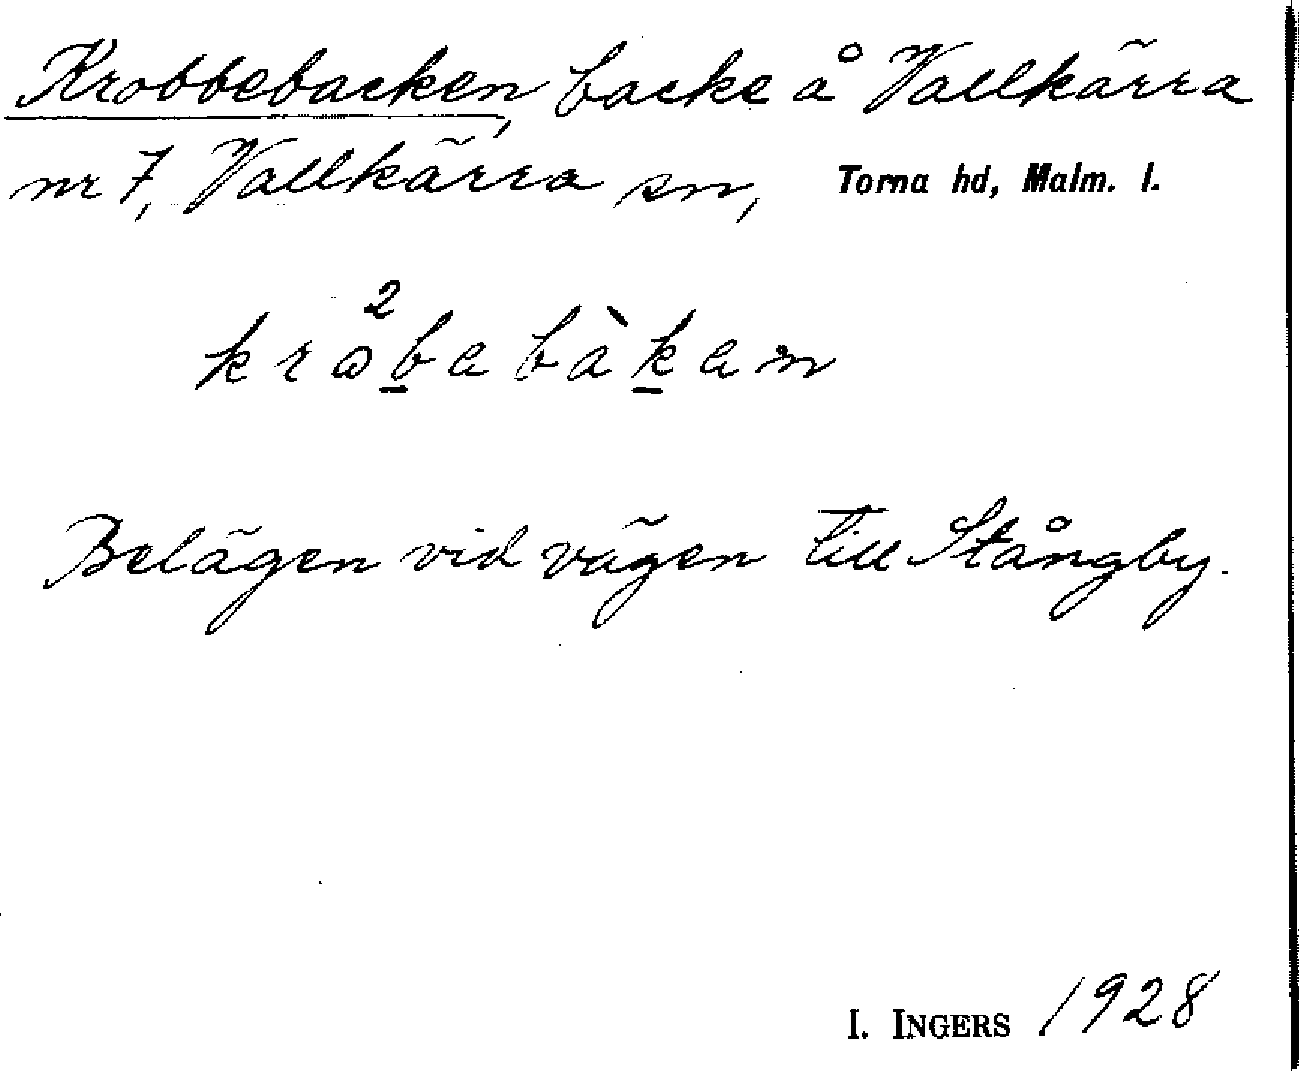 Krobbebacken, backe å Vallkärra
nr 7, Vallkärra sn, Torna hd, Malm. l.
Belägen vid vägen till Stångby.
I. INGERS 1928